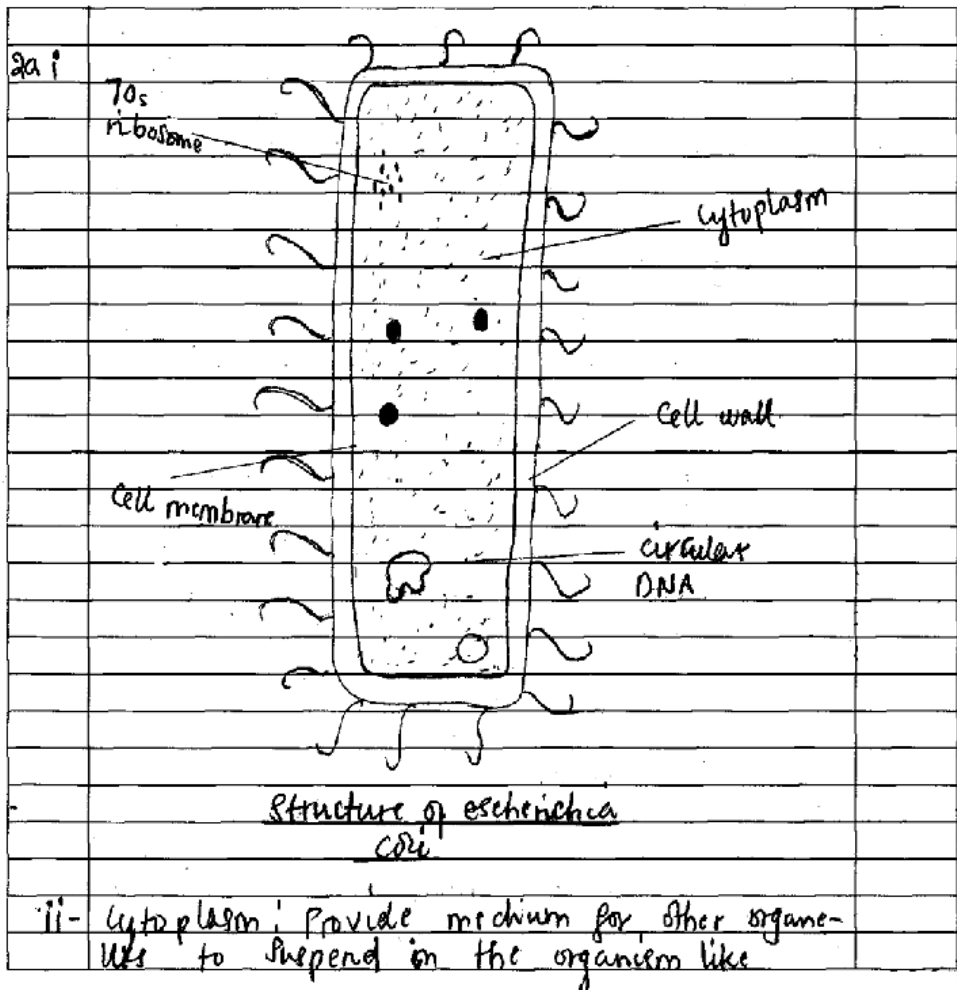 2a i
70s
ribosome
cytoplasm
Cell wall
Cell membrane
circular
DNA
Structure of escherichia
coli
ii- Cytoplasm: Provide medium for other organe-
lles to suspend in the organism like